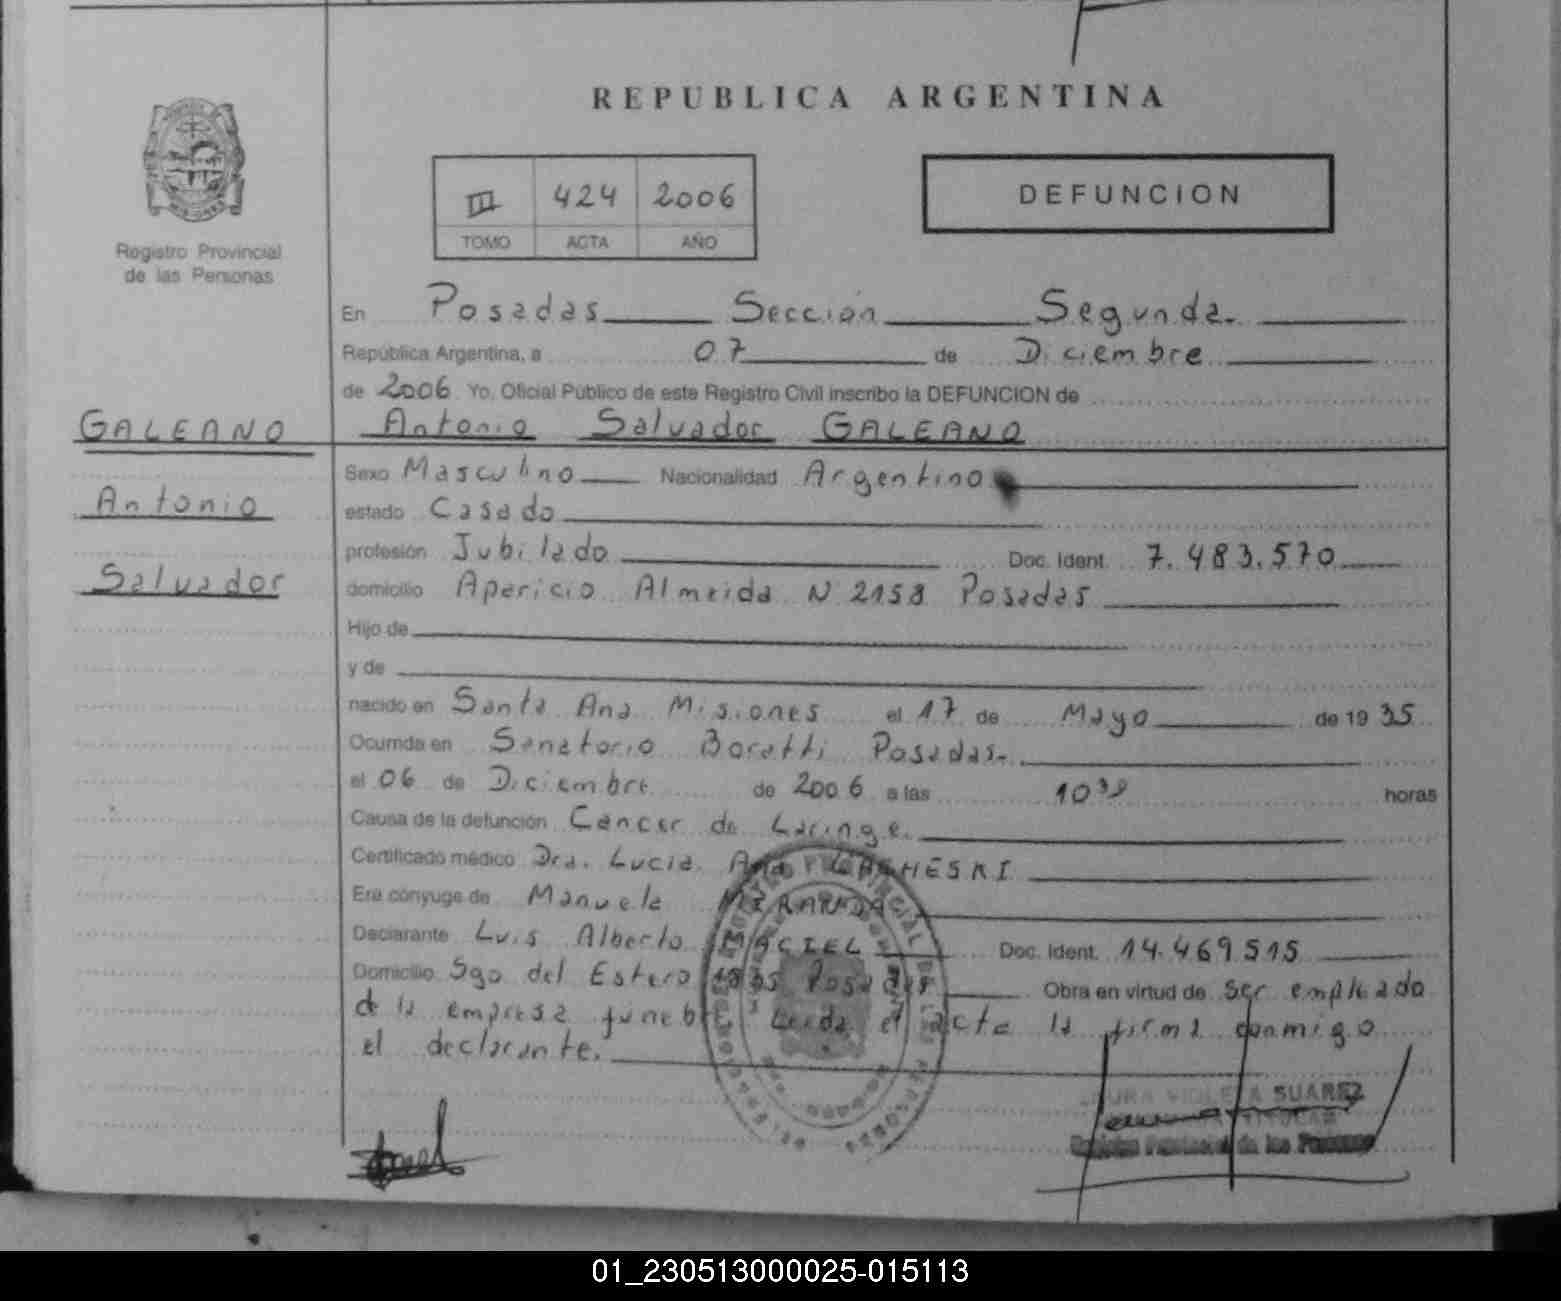 REPUBLICA ARGENTINA
III 424 2006
TOMO ACTA AÑO
DEFUNCION
Registro Provincial
de las Personas
En Posadas Sección Segunda.
República Argentina, a 07 de Diciembre
de 2006 Yo, Oficial Público de este Registro Civil inscribo la DEFUNCION de
GALEANO
Antonio Salvador GALEANO
Antonio
Salvador
Sexo Masculino Nacionalidad Argentino
estado Casado
profesión Jubilado Doc. Ident. 7.483.570
domicilio Aparicio Almeida N 2158 Posadas
Hijo de
y de
nacido en Santa Ana Misiones el 17 de Mayo de 1935
Ocurrida en Sanatorio Boratti Posadas.
el 06 de Diciembre de 2006 a las 10 horas
Causa de la defunción Cancer de Laringe.
Certificado médico Dra. Lucia Ana
Era cónyuge de Manuela MIRANDA
Declarante Luis Alberto MACIEL Doc. Ident. 14.469.515
Domicilio Sgo del Estero Posadas Obra en virtud de Ser empleado
de la empresa funebre. Leida el acta la firma conmigo
el declarante.
VIOLETA SUAREZ
01_230513000025-015113